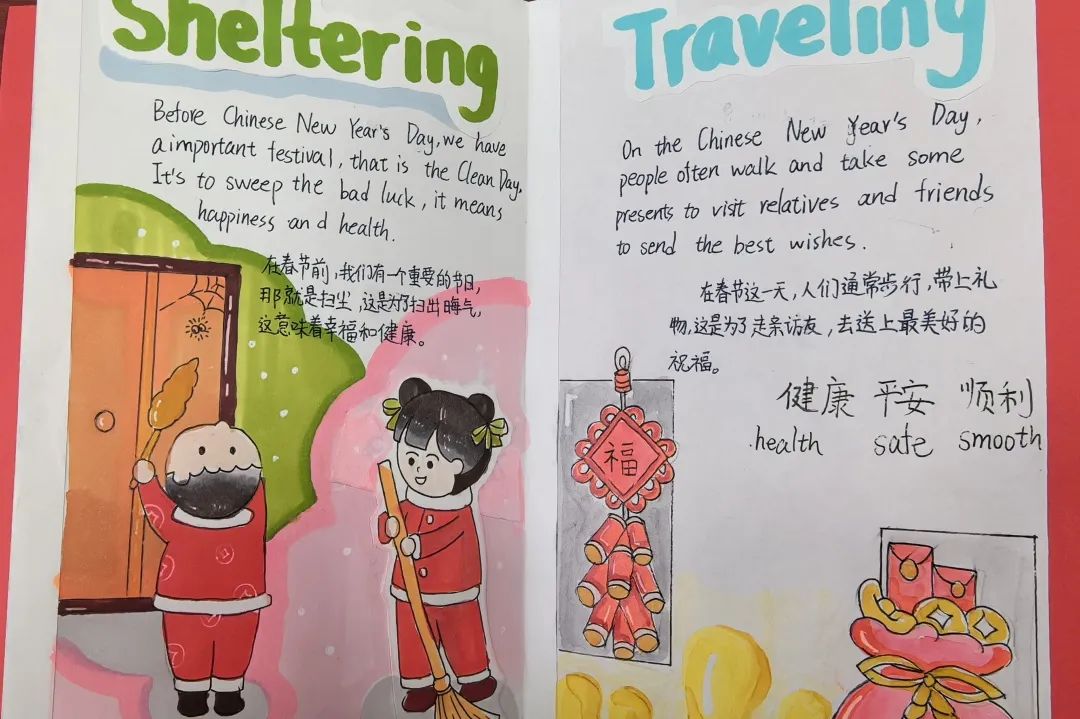 Sheltering
Before Chinese New Year's Day, we have
a important festival, that is the Clean Day.
It's to sweep the bad luck, it means
happiness and health.
在春节前,我们有一个重要的节日,
那就是扫尘,这是为了扫出晦气,
这意味着幸福和健康。
Traveling
On the Chinese New Year's Day,
people often walk and take some
presents to visit relatives and friends
to send the best wishes.
在春节这一天,人们通常步行,带上礼
物,这是为了走亲访友,去送上最美好的
祝福。
健康 平安 顺利
health safe smooth
福